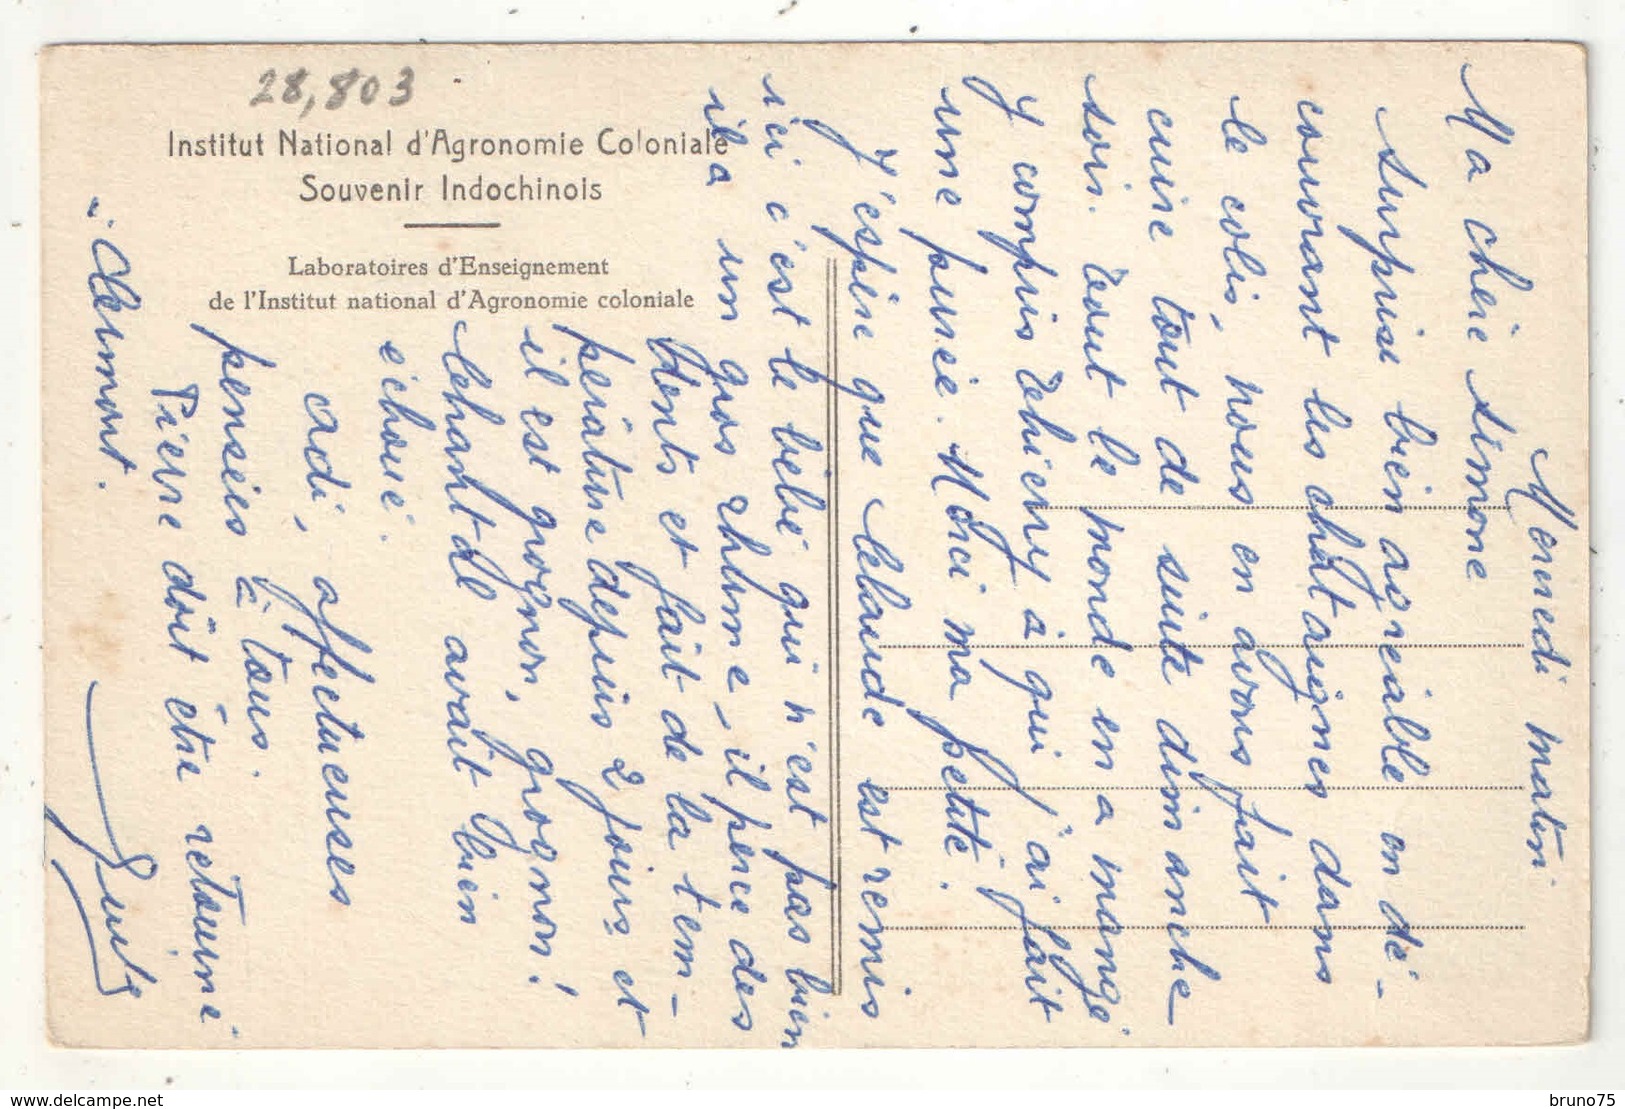 28,803
Institut National d'Agronomie Coloniale
Souvenir Indochinois
Laboratoires d'Enseignement
de l'Institut national d'Agronomie coloniale
Mercredi matin
Ma chère Simone
Surprise bien agréable en dé-
couvrant les châtaignes dans
le colis, nous en avons fait
cuire tout de suite dimanche
soir. Tout le monde en a mangé
y compris Thierry à qui j'ai fait
une purée. Merci ma petite.
J'espère que Claude est remis
ici c'est le bébé qui n'est pas bien
il a un gros rhume, il perce des
dents et fait de la tem-
pérature depuis 2 jours et
il est grognon, grognon!
Chantal avait bien
échoué.
Cadi, affectueuses
pensées à tous.
Pierre doit être retourné
à Clermont.
delcampe.net
bruno75